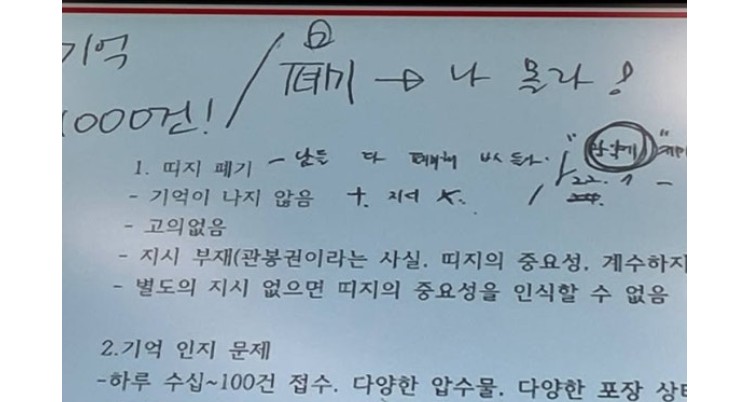 기억 / 폐기 → 나 몰라!
1000건!
1. 띠지 폐기 - 남들 다 폐기해
- 기억이 나지 않음 + 지시 X.
- 고의없음
- 지시 부재(관봉권이라는 사실. 띠지의 중요성. 계수하지
- 별도의 지시 없으면 띠지의 중요성을 인식할 수 없음
2.기억 인지 문제
-하루 수십~100건 접수. 다양한 압수물. 다양한 포장 상태